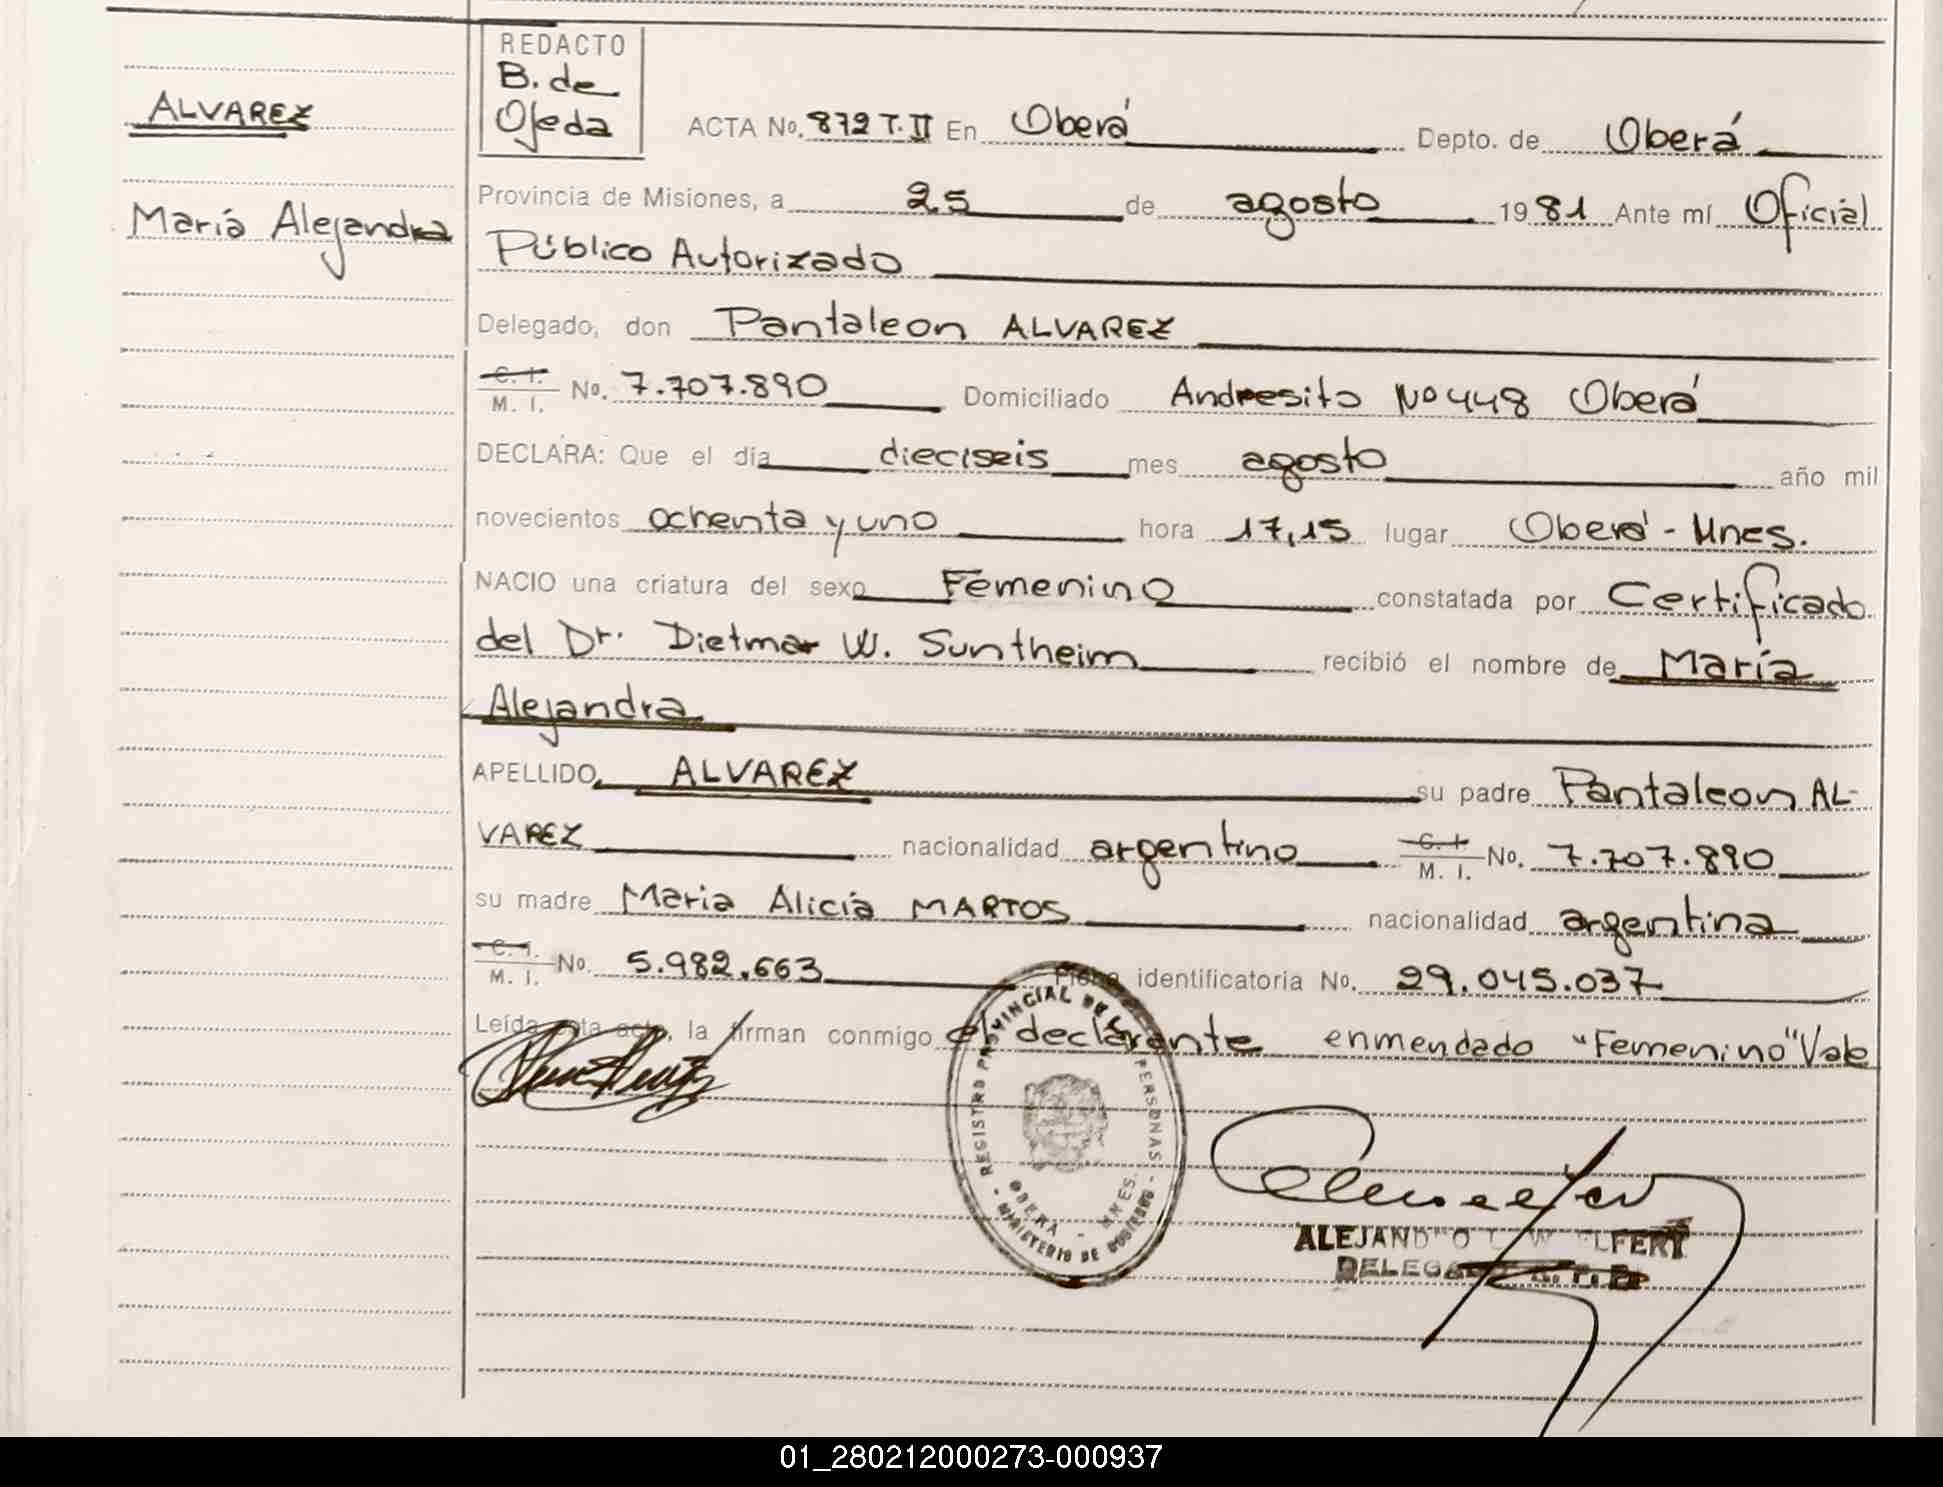 ALVAREZ
María Alejandra
REDACTO
B. de
Ojeda
ACTA No. 872 T. II En Oberá Depto. de Oberá
Provincia de Misiones, a 25 de agosto 1981 Ante mí Oficial
Público Autorizado
Delegado, don Pantaleon ALVAREZ
C. I.
M. I. No. 7.707.890 Domiciliado Andresito No 448 Oberá
DECLARA: Que el día dieciseis mes agosto año mil
novecientos ochenta y uno hora 17,15 lugar Oberá - Mnes.
NACIO una criatura del sexo Femenino constatada por Certificado
del Dr. Dietmar W. Suntheim recibió el nombre de María
Alejandra
APELLIDO ALVAREZ su padre Pantaleon AL-
VAREZ nacionalidad argentino C. I. M. I. No. 7.707.890
su madre Maria Alicia MARTOS nacionalidad argentina
C. I.
M. I. No. 5.982.663 Ficha identificatoria No. 29.045.037
Leída esta acta, la firman conmigo el declarante enmendado "Femenino" Vale
REGISTRO PROVINCIAL DE LAS PERSONAS
OBERA - MNES.
MINISTERIO DE GOBIERNO
DELEGADO
01_280212000273-000937